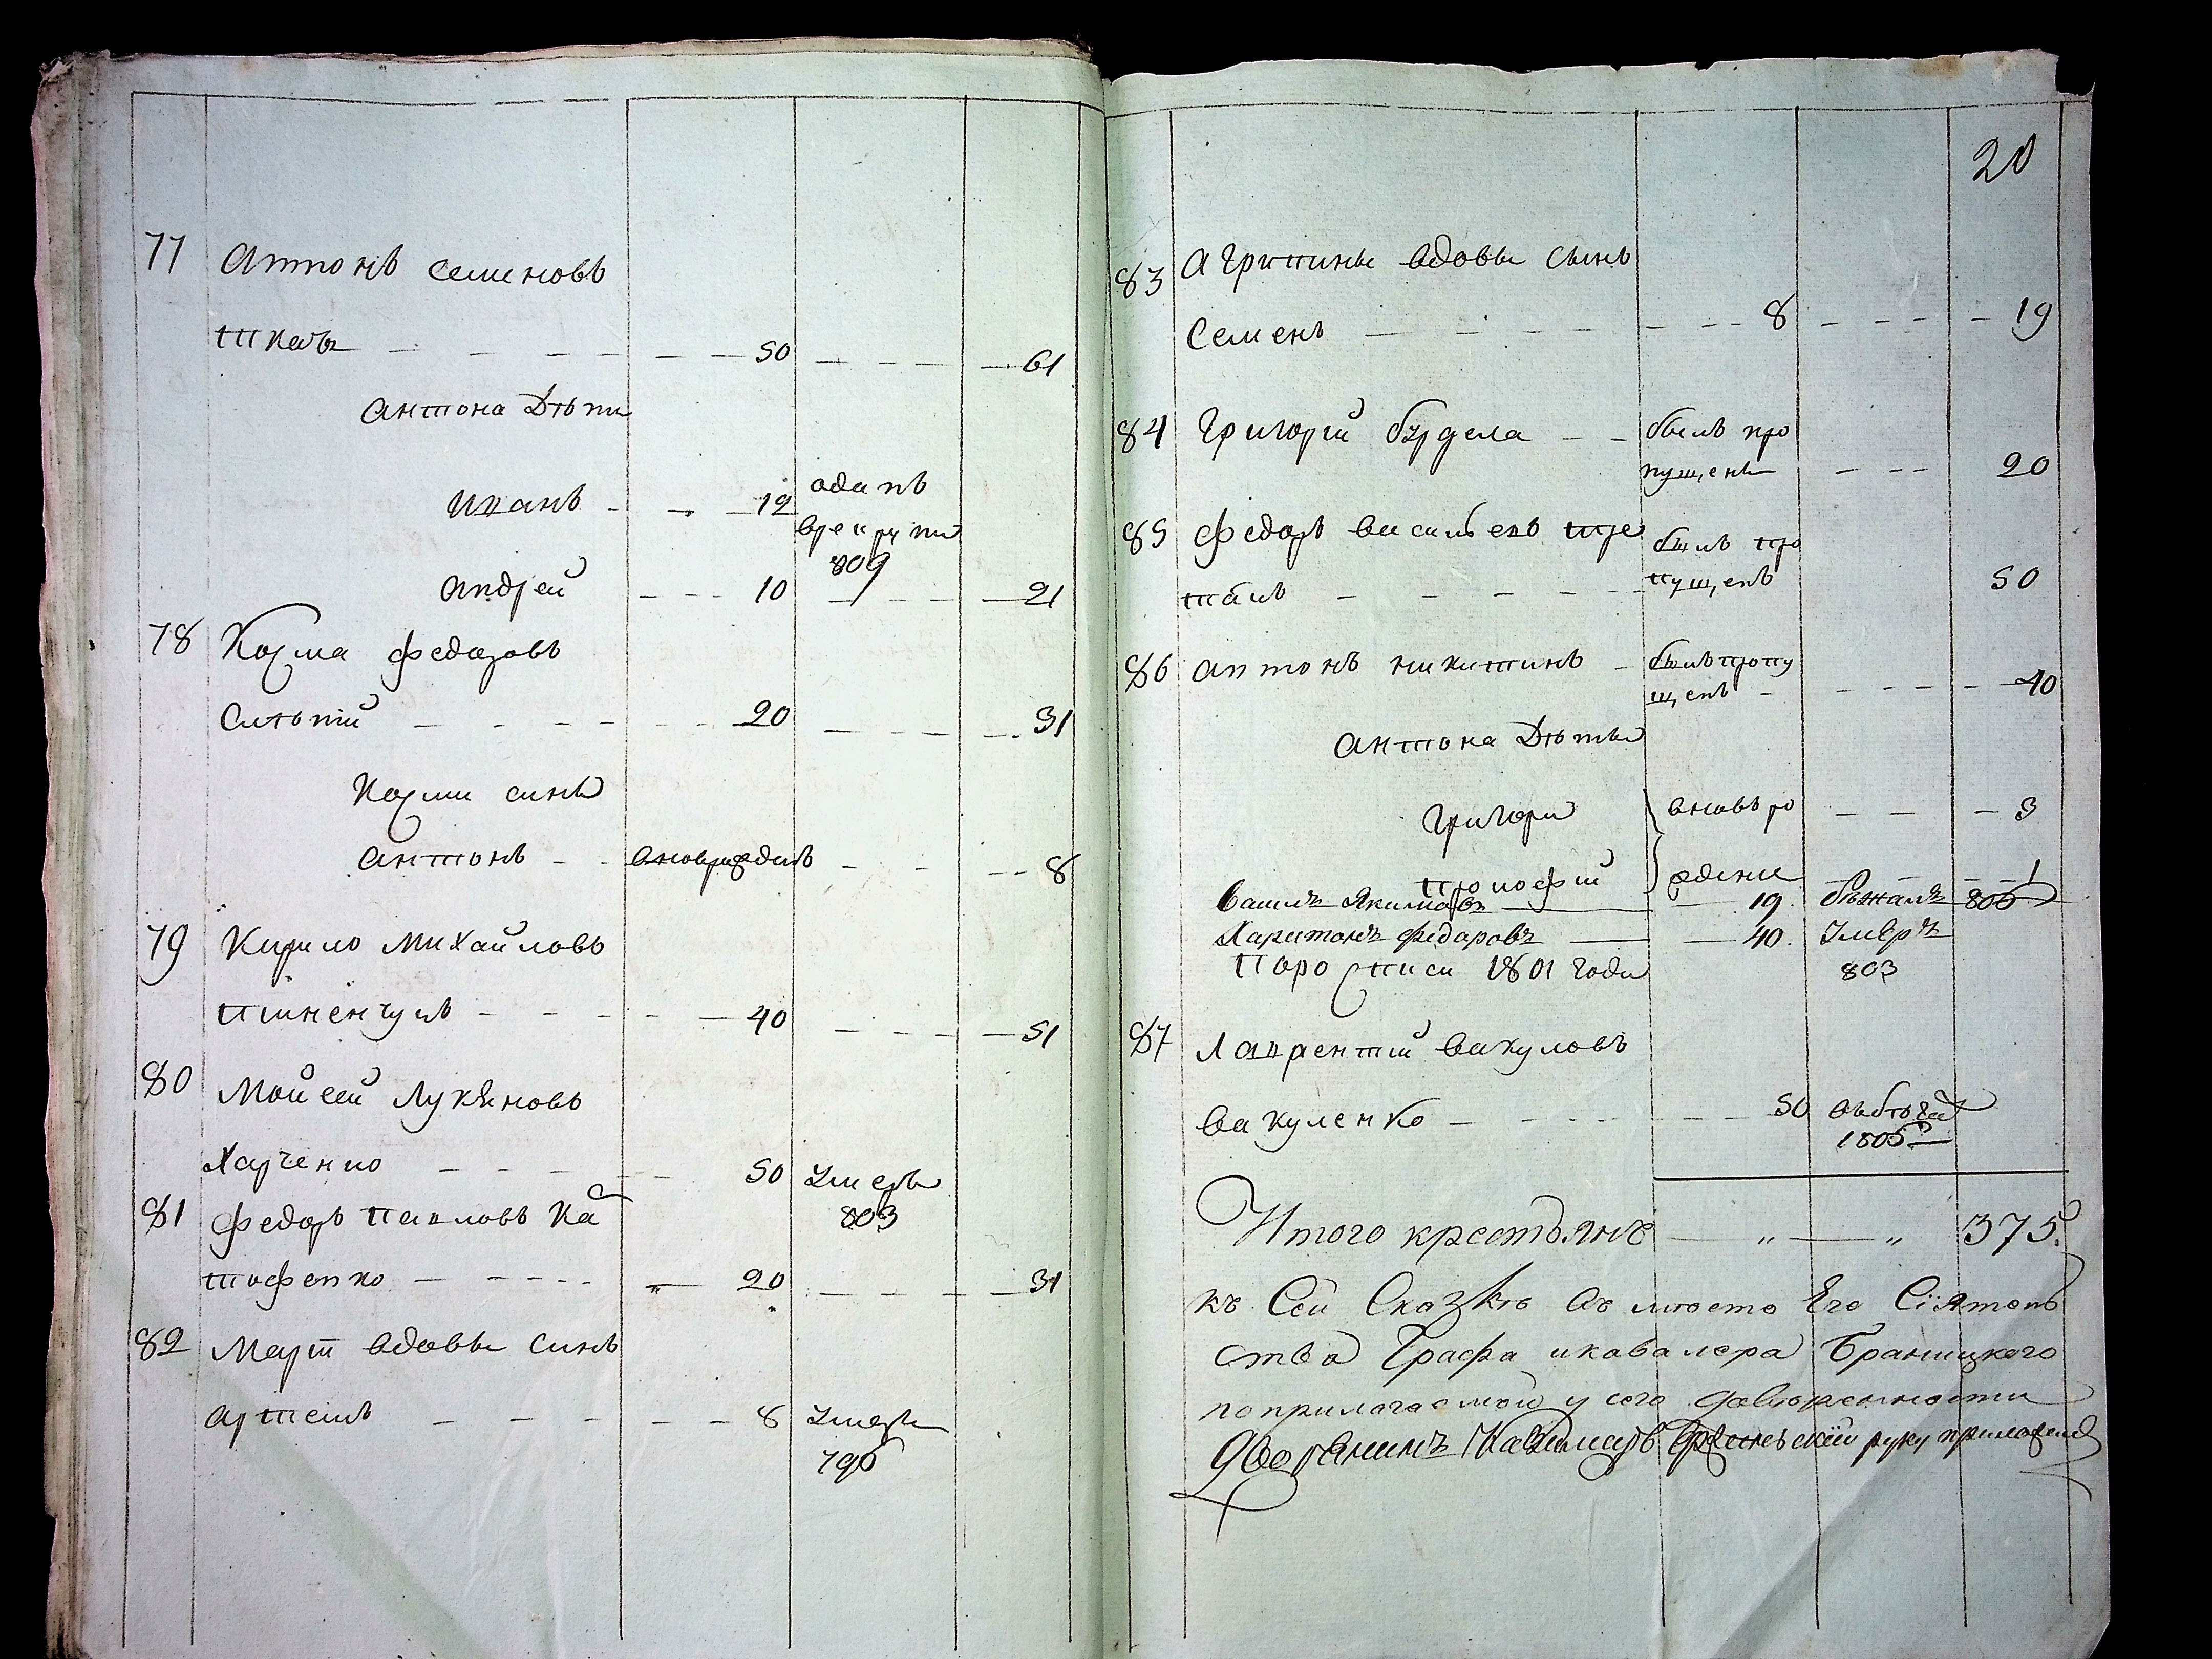 77 Антонъ Семеновъ
Ткачъ — — — — 50 — — — 61
Антона Дѣти
Иванъ — — 12 оданъ
врекруты
809
Андрей — — — 10 — — — 21
78 Козма Федоровъ
Слѣпій — — — — 20 — — — 31
Козми синъ
Антонъ — — вновьрожденъ — — — 8
79 Кирило Михайловъ
— — — — 40 — — — 51
80 Мойсей Лукяновъ
Харченко — — — 50 Умеръ
803
81 Федоръ Павловъ Ка
тофенко — — — — 20 — — — 31
82 Март вдовы Синъ
Артемъ — — — — — 8 Умеръ
796
20
83 Агрипины вдовы Сынъ
Семенъ — — — — — 8 — — — 19
84 Григорій бурдела — — былъ про
пущенъ — — — 20
85 Федоръ Васильевъ
былъ про
пущенъ 50
86 Антонъ Никитинъ — былъ пропу
щенъ — — — — 40
Антона Дѣты
Григори вновь ро — — — 3
Прокофій ждение — — — 1
Василъ Якимовъ — 19. бѣжалъ 806
Харитонъ Федаровъ — 40. Умеръ
803
По росписи 1801 года
87 Лаврентий Вакуловъ
Вакуленко — — — — 50
1805
Итого крестьянъ — „ — „ 375.
къ Сей Сказкѣ въ мѣсто Его Сіятель
ства Графа и кавалера Браницкого
по прилагаемой у сего довѣренности
Дворянинъ руку приложилъ